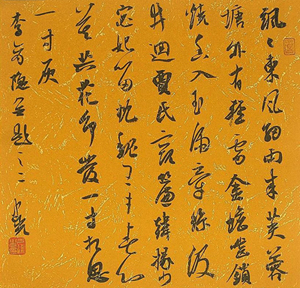 颯〻東風細雨來芙蓉
塘外有輕雷金蟾齧鎖
燒香入玉虎牽絲汲
井迴賈氏窺簾韓掾少
宓妃留枕魏王才春心
莫共花爭發一寸相思
一寸灰
李商隱無題之二